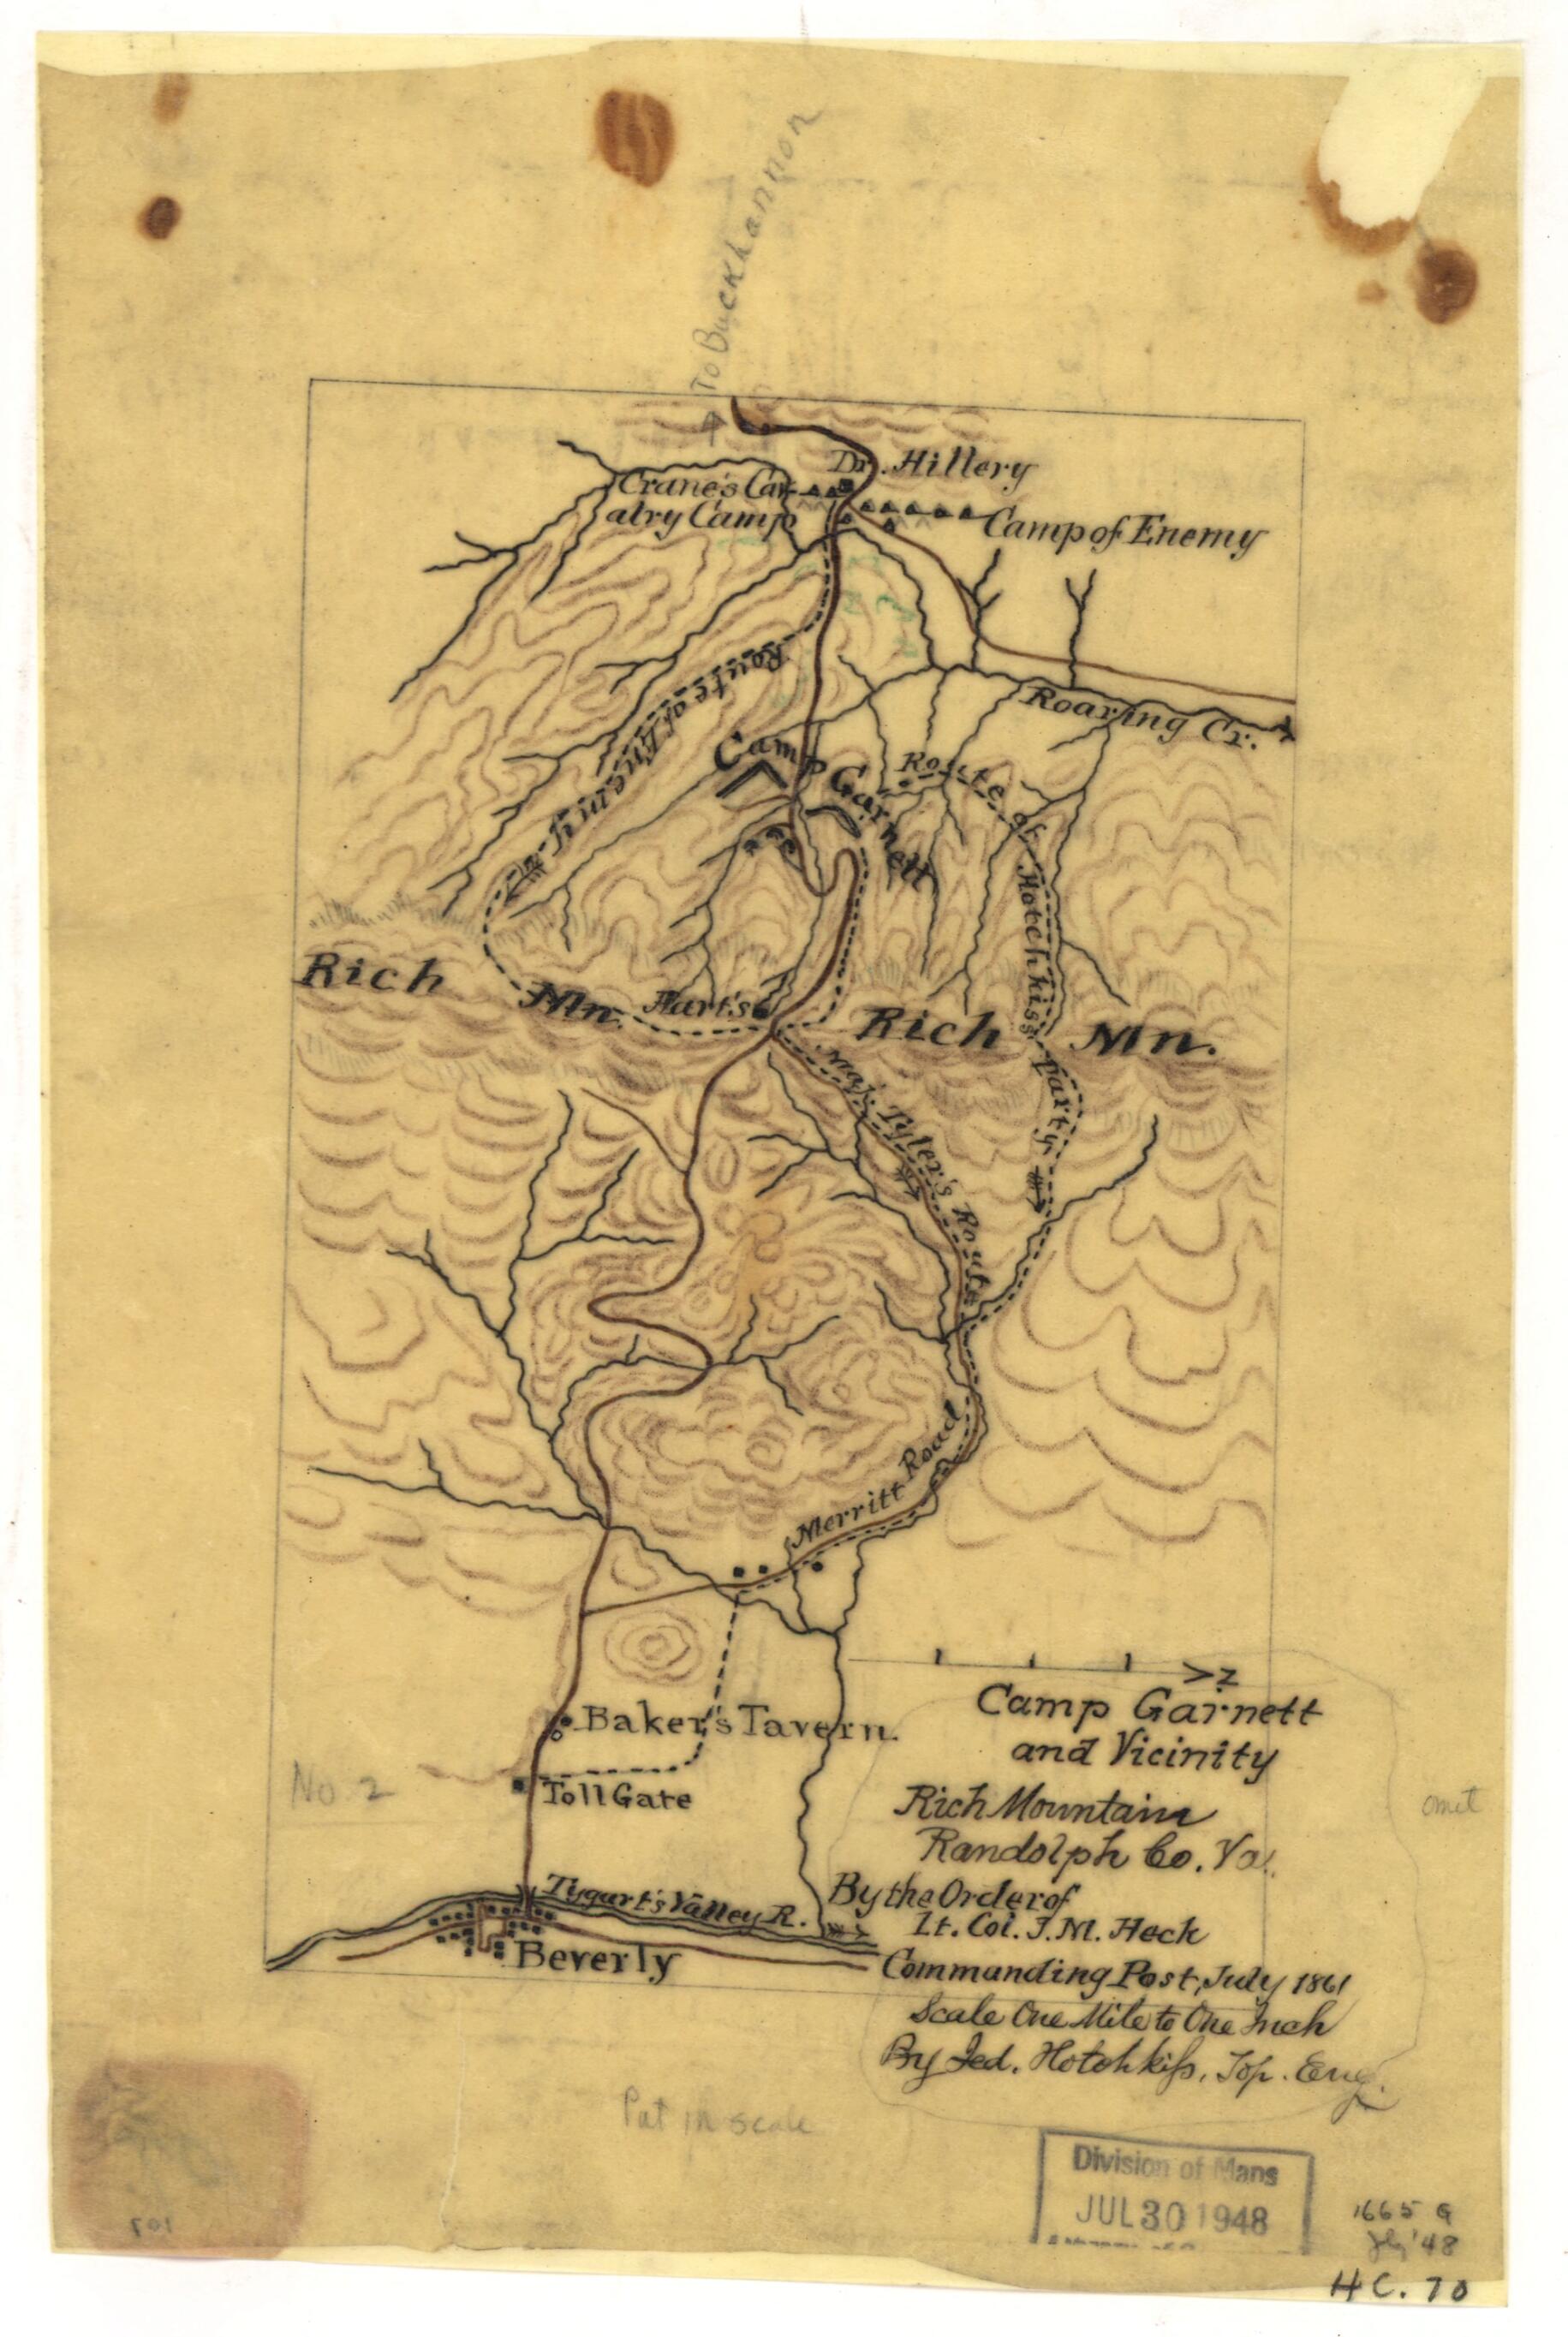 To Buckhannon
Dr. Hillery
Crane's Cav-
alry Camp
Camp of Enemy
Route of Enemy
Roaring Cr.
Camp Garnett
Route of Hotchkiss party
Rich Mn.
Hart's
Rich Mn.
Maj. Tyler's Route
Merritt Road
Baker's Tavern.
No. 2
Toll Gate
Tygart's Valley R.
Beverly
N
Camp Garnett
and Vicinity
Rich Mountain
Randolph Co. Va.
By the Order of
Lt. Col. J. M. Heck
Commanding Post, July 1861
Scale One Mile to One Inch
By Jed. Hotchkiss, Top. Eng.
omit
Put in scale
Division of Maps
JUL 30 1948
1665 G
Jly '48
H C. 70
107